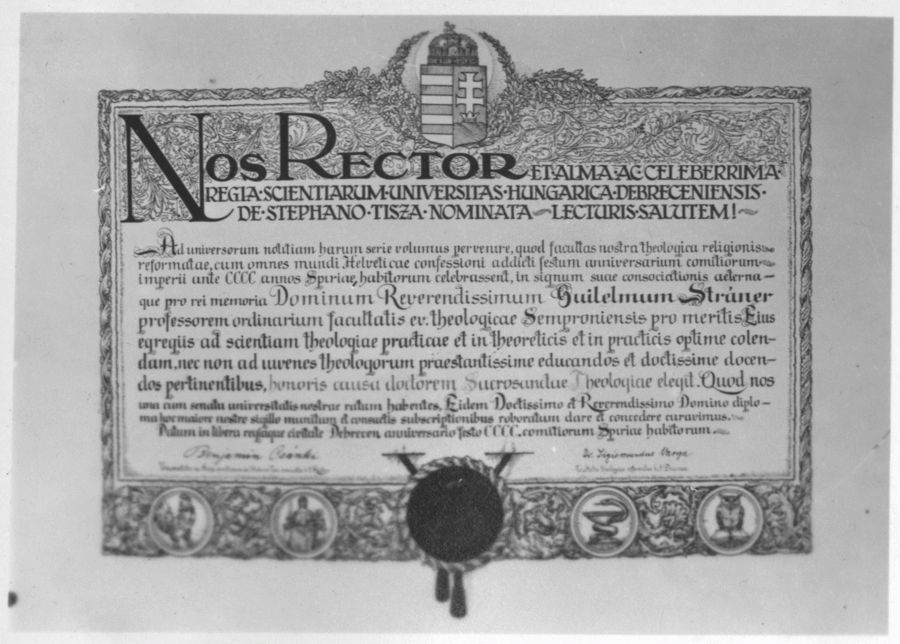 NOS RECTOR ET·ALMA·AC·CELEBERRIMA·
REGIA·SCIENTIARUM·UNIVERSITAS·HUNGARICA·DEBRECENIENSIS·
DE·STEPHANO·TISZA·NOMINATA LECTURIS·SALUTEM!
Ad universorum notitiam harum serie volumus pervenire, quod facultas nostra theologica religionis
reformatae, cum omnes mundi Helveticae confessioni addicti festum anniversarium comitiorum
imperii ante CCCC annos Spiriae habitorum celebrassent, in signum suae consociationis aeterna-
que pro rei memoria Dominum Reverendissimum Guilelmum Stráner
professorem ordinarium facultatis ev. theologicae Semproniensis pro meritis Eius
egregiis ad scientiam theologiae practicae et in theoreticis et in practicis optime colen-
dam, nec non ad iuvenes theologorum praestantissime educandos et doctissime docen-
dos pertinentibus, honoris causa doctorem Sacrosanctae Theologiae elegit. Quod nos
una cum senatu universitatis nostrae ratum habentes, Eidem Doctissimo et Reverendissimo Domino diplo-
ma hoc maiore nostro sigillo munitum et consuetis subscriptionibus roboratum dare et concedere curavimus.
Datum in libera regiaque civitate Debrecen anniversario festo CCCC. comitiorum Spiriae habitorum.
Benjamin Csánki
Dr. Sigismundus Varga